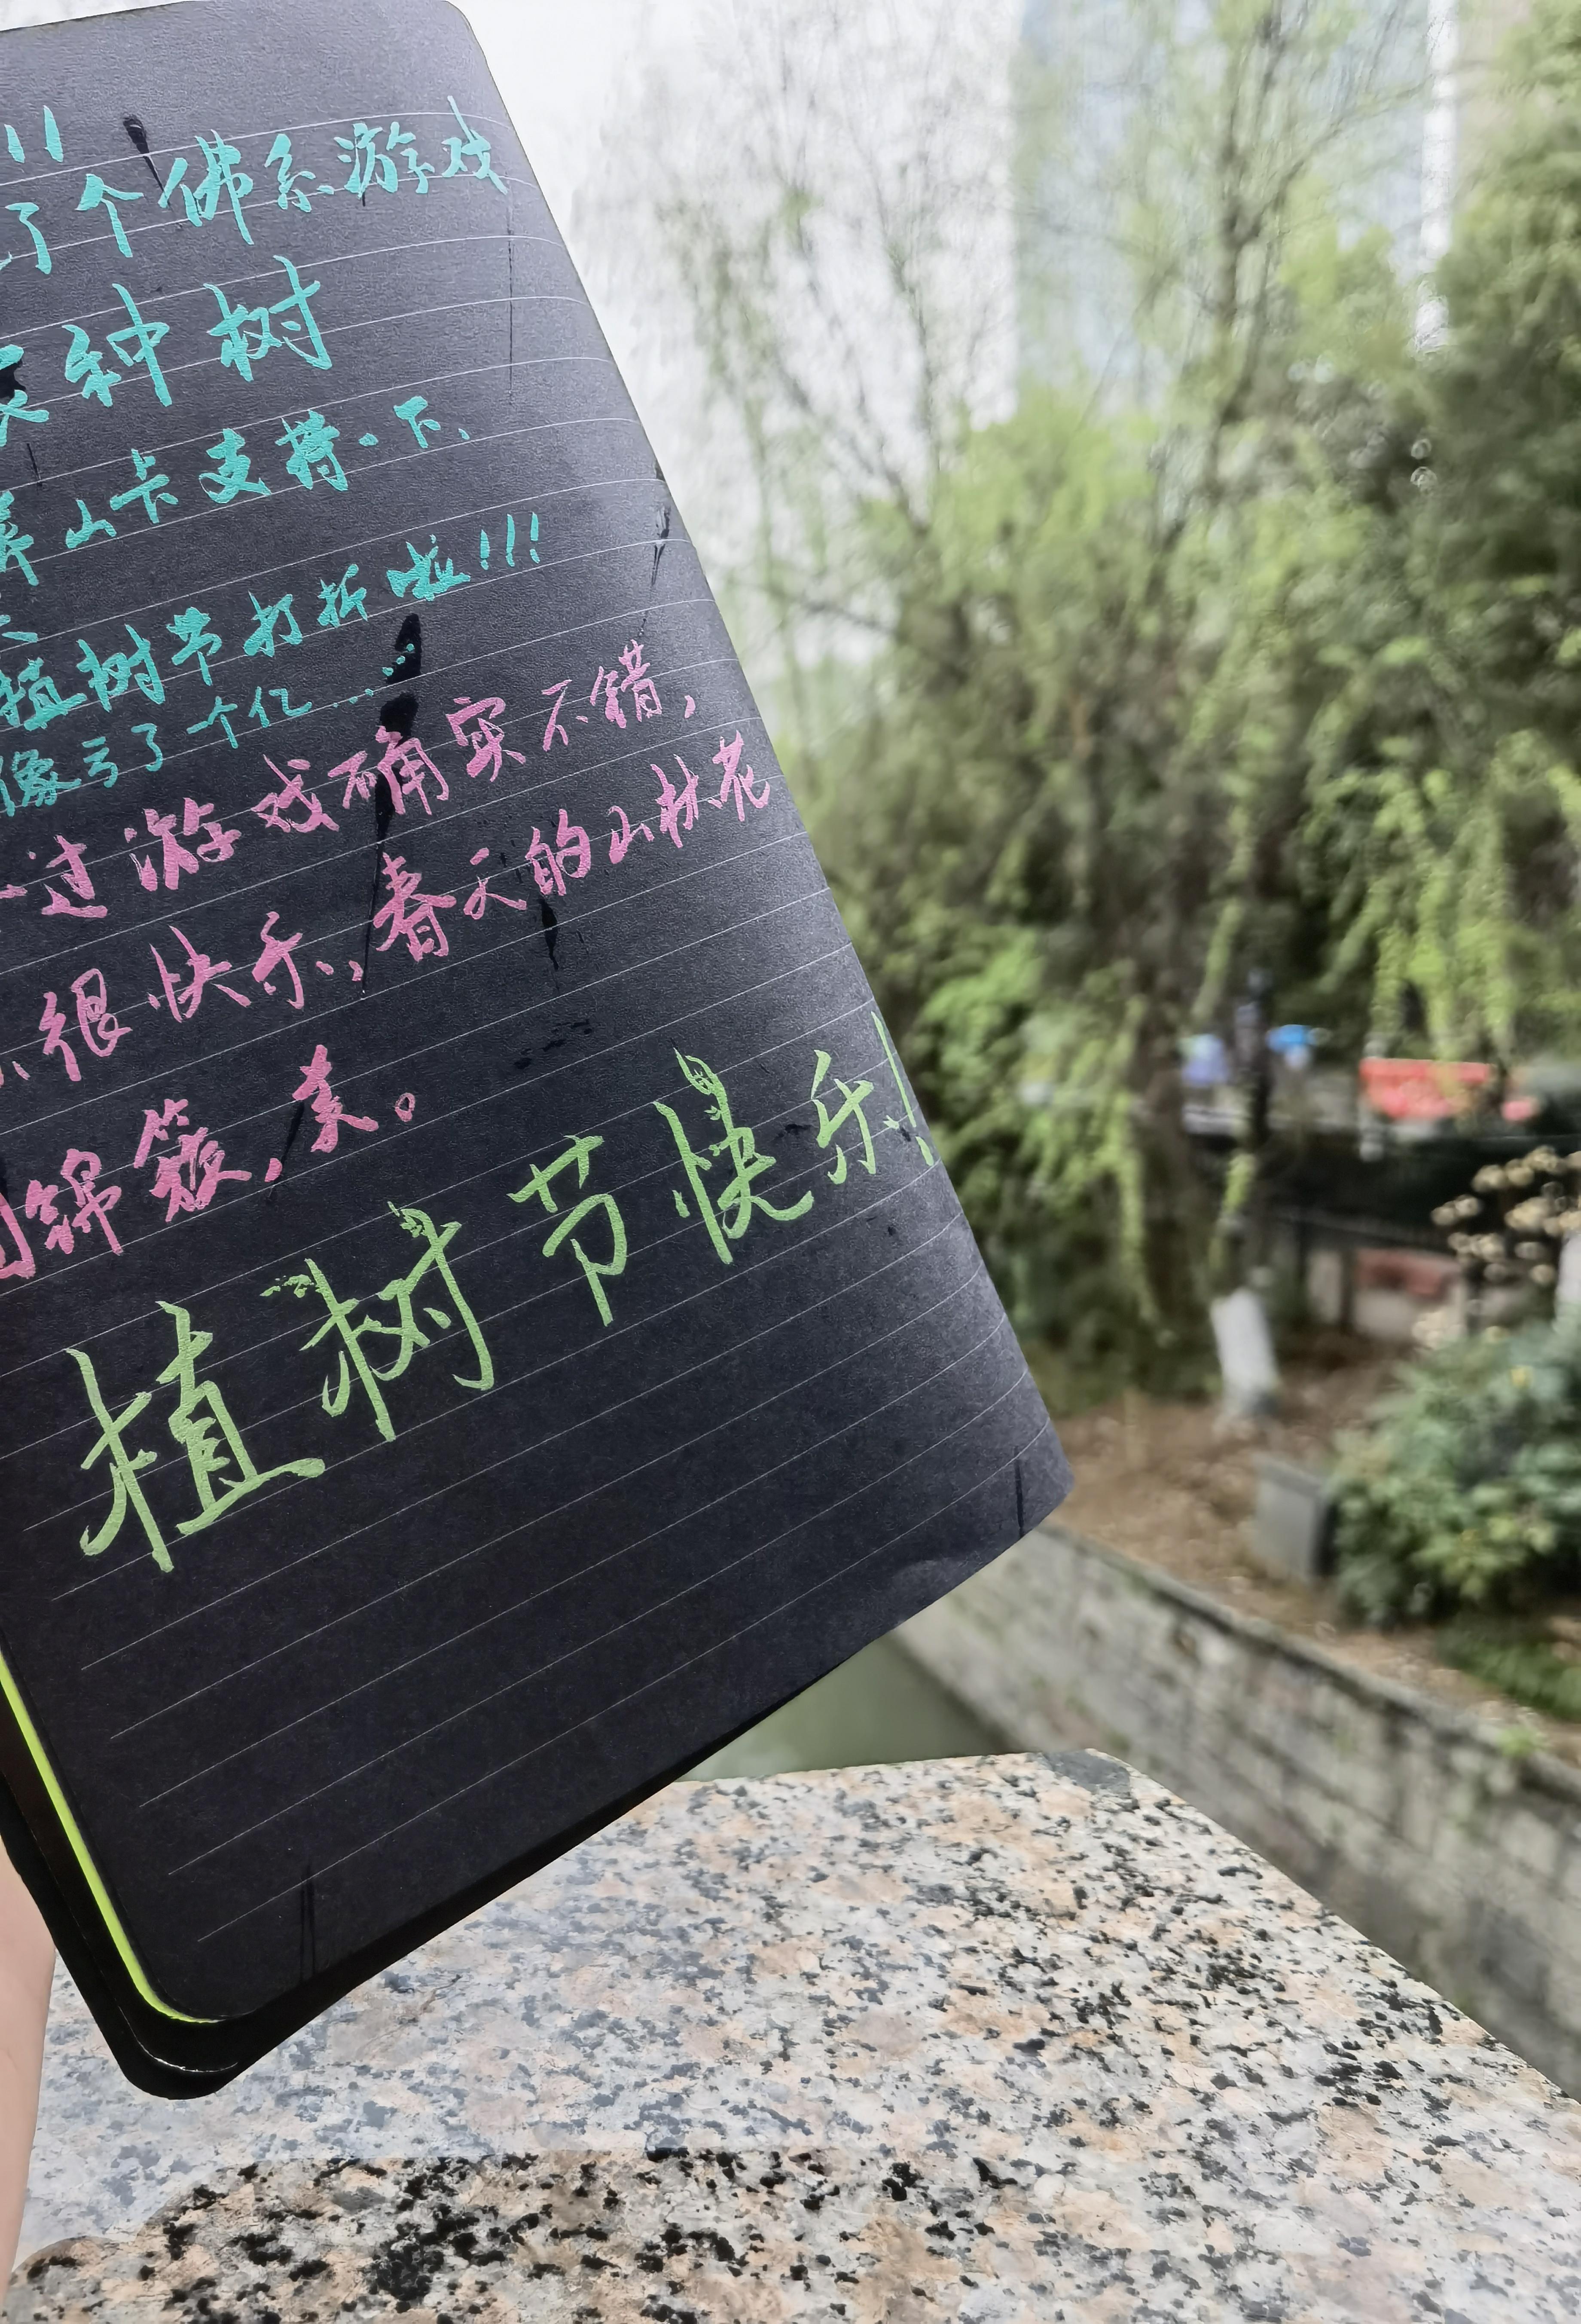 !!
了个佛系游戏
种树
山卡支持一下、
植树节打折啦!!!
像亏了一个亿......
过游戏确实不错,
很快乐,春天的山林花
锦簇,美。
植树节快乐!